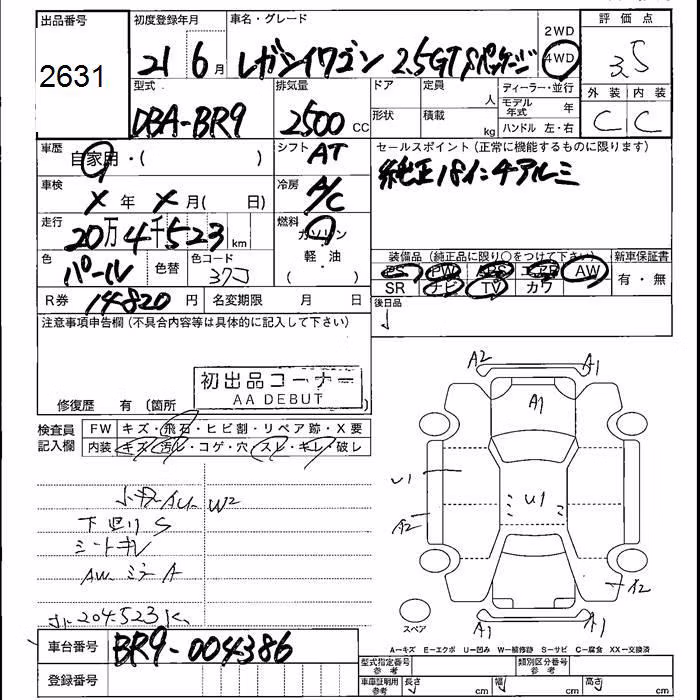 出品番号 初度登録年月 車名・グレード 2WD 評価点
2631 21 6月 レガシイワゴン 2.5GT Sパッケージ 4WD 3.5
型式 排気量 ドア 定員 人 ディーラー・並行 外装 内装
DBA-BR9 2500 CC 形状 積載 kg モデル年式 年 C C
ハンドル 左・右
車歴 自家用・( ) シフト AT セールスポイント(正常に機能するものに限ります)
純正18インチアルミ
車検 X年 X月( 日) 冷房 A/C
走行 20万4千523 km 燃料 ガソリン・軽・油 ( )
装備品(純正品に限り○をつけて下さい) 新車保証書
色 パール 色替 色コード 37J PS PW ABS エアB AW 有・無
SR ナビ TV カワ
R券 14820円 名変期限 月 日 後日品
注意事項申告欄(不具合内容等は具体的に記入して下さい)
初出品コーナー
AA DEBUT
修復歴 有 (箇所
検査員記入欄 FW キズ・飛石・ヒビ割・リペア跡・X要
内装 キズ・汚レ・コゲ・穴・スレ・キレ・破レ
A2 A1
A1
U1 U1
小キズAU W2
下廻リS A2
シートキレ
AWミラーA A2
204.523K
スペア A1 A1
車台番号 BR9-004386
A-キズ E-エクボ U-凹み W-補修跡 S-サビ C-腐食 XX-交換済
登録番号
型式指定番号参考 類別区分番号参考
車庫証明用参考 長さ cm 幅 cm 高さ cm